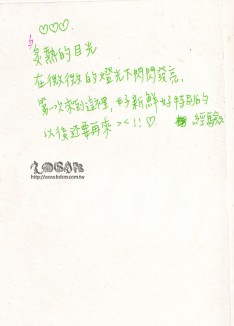 ♡♡♡
炙熱的目光
在微微的燈光下閃閃發亮,
第一次來到這裡, 好新鮮好特別的
以後還要再來 ><!! ♡ 經驗
http://www.hotcm.com.tw